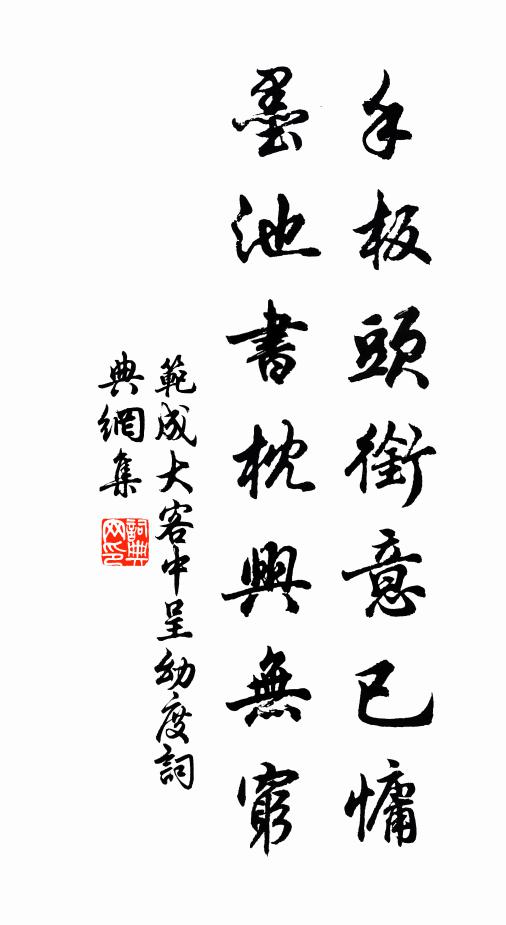 手板頭銜意已慵
墨池書枕興無窮
範成大客中呈幼度詞
典網集
詞典网印